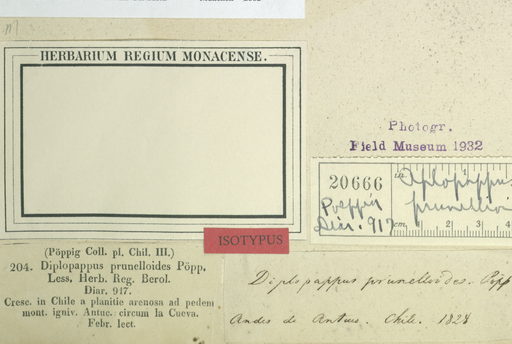 HERBARIUM REGIUM MONACENSE.
Photogr.
Field Museum 1932
20666
Poeppig
Diar. 917
in.
Aplopappus
prunelloi
cm.
1 2 3 4
ISOTYPUS
(Pöppig Coll. pl. Chil. III.)
204. Diplopappus prunelloides Pöpp,
Less, Herb. Reg. Berol.
Diar. 917.
Cresc. in Chile a planitie arenosa ad pedem
mont. igniv. Antuc. circum la Cueva.
Febr. lect.
Diplopappus prunelloides. Pöpp
Andes de Antuco. Chile. 1828